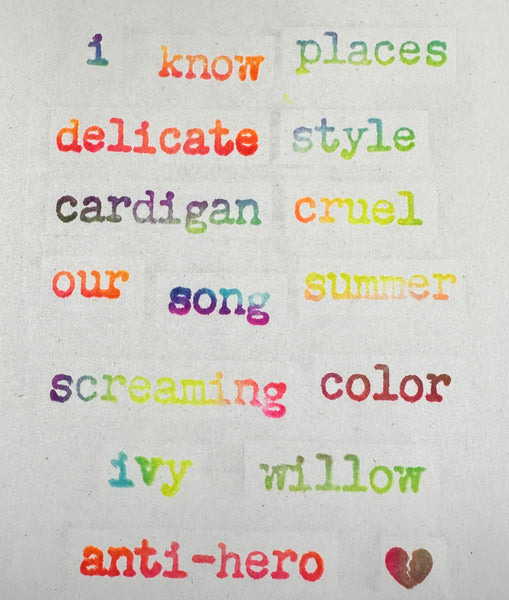 i know places
delicate style
cardigan cruel
our song summer
screaming color
ivy willow
anti-hero